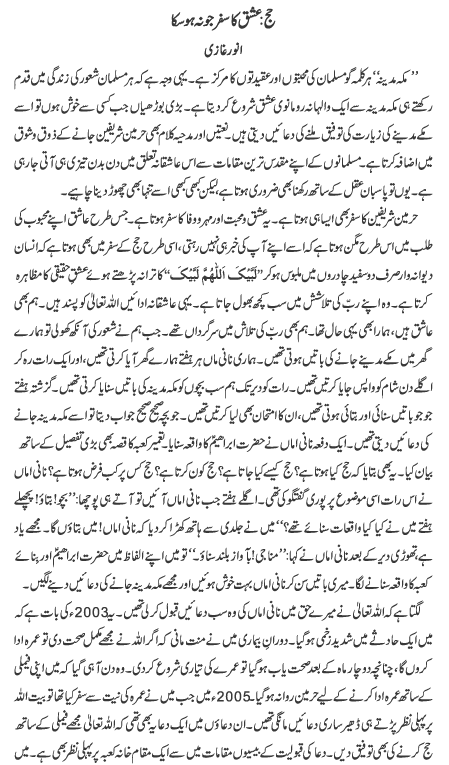 حج: عشق کا سفر جو نہ ہوسکا
انور غازی
’’مکہ مدینہ‘‘ ہر کلمہ گو مسلمان کی محبتوں اور عقیدتوں کا مرکز ہے۔ یہی وجہ ہے کہ ہر مسلمان شعور کی زندگی میں قدم
رکھتے ہی مکہ مدینہ سے ایک والہانہ رومانوی عشق شروع کردیتا ہے۔ بڑی بوڑھیاں جب کسی سے خوش ہوں تو اسے
مکے مدینے کی زیارت کی توفیق ملنے کی دعائیں دیتی ہیں۔ نعتیں اور مدحیہ کلام بھی حرمین شریفین جانے کے ذوق وشوق
میں اضافہ کرتا ہے۔ مسلمانوں کے اپنے مقدس ترین مقامات سے اس عاشقانہ تعلق میں دن بدن تیزی ہی آتی جارہی
ہے۔ یوں تو پاسبان عقل کے ساتھ رکھنا بھی ضروری ہوتا ہے، لیکن کبھی کبھی اسے تنہا بھی چھوڑ دینا چاہیے۔
حرمین شریفین کا سفر بھی ایسا ہی ہوتا ہے۔ یہ عشق و محبت اور مہر و وفا کا سفر ہوتا ہے۔ جس طرح عاشق اپنے محبوب کی
طلب میں اس طرح مگن ہوتا ہے کہ اسے اپنے آپ کی خبر ہی نہیں رہتی، اسی طرح حج کے سفر میں بھی ہوتا ہے کہ انسان
دیوانہ وار صرف دو سفید چادروں میں ملبوس ہوکر ’’لَبَّیْکَ اَللّٰھُمَّ لَبَّیْکَ‘‘ کا ترانہ پڑھتے ہوئے عشقِ حقیقی کا مظاہرہ
کرتا ہے۔ وہ اپنے ربّ کی تلاش میں سب کچھ بھول جاتا ہے۔ یہی عاشقانہ ادائیں اللہ تعالیٰ کو پسند ہیں۔ ہم بھی
عاشق ہیں، ہمارا بھی یہی حال تھا۔ ہم بھی ربّ کی تلاش میں سرگرداں تھے۔ جب ہم نے شعور کی آنکھ کھولی تو ہمارے
گھر میں مکے مدینے جانے کی باتیں ہوتی تھیں۔ ہماری نانی ماں ہر ہفتے ہمارے گھر آیا کرتی تھیں، اور ایک رات رہ کر
اگلے دن شام کو واپس جایا کرتیں تھیں۔ رات کو دیر تک ہم سب بچوں کو مکہ مدینہ کی باتیں سنایا کرتی تھیں۔ گزشتہ ہفتے
جو جو باتیں سنائی اور بتائی ہوتی تھیں، ان کا امتحان بھی لیا کرتیں تھیں۔ جو بچہ صحیح صحیح جواب دیتا تو اسے مکہ مدینہ جانے
کی دعائیں دیتی تھیں۔ ایک دفعہ نانی اماں نے حضرت ابراہیمؑ کا واقعہ سنایا۔ تعمیر کعبہ کا قصہ بھی بڑی تفصیل کے ساتھ
بیان کیا۔ یہ بھی بتایا کہ حج کیا ہوتا ہے؟ حج کیسے کیا جاتا ہے؟ حج کون کرتا ہے؟ حج کس پر کب فرض ہوتا ہے؟ نانی اماں
نے اس رات اسی موضوع پر پوری گفتگو کی تھی۔ اگلے ہفتے جب نانی اماں آئیں تو آتے ہی پوچھا: ’’بچو! بتاؤ! پچھلے
ہفتے میں نے کیا کیا واقعات سنائے تھے؟‘‘ میں نے جلدی سے ہاتھ کھڑا کردیا کہ نانی اماں! میں بتاؤں گا۔ مجھے یاد
ہے، تھوڑی دیر کے بعد نانی اماں نے کہا: ’’مناجی! بآوازِ بلند سناؤ۔‘‘ تو میں اپنے الفاظ میں حضرت ابراہیمؑ اور بنائے
کعبہ کا واقعہ سنانے لگا۔ میری باتیں سن کر نانی اماں بہت خوش ہوئیں اور مجھے مکہ مدینہ جانے کی دعائیں دینے لگیں۔
لگتا ہے کہ اللہ تعالیٰ نے میرے حق میں نانی اماں کی وہ سب دعائیں قبول کرلی تھیں۔ یہ 2003ء کی بات ہے کہ
میں ایک حادثے میں شدید زخمی ہوگیا۔ دورانِ بیماری میں نے منت مانی کہ اگر اللہ نے مجھے مکمل صحت دی تو عمرہ ادا
کروں گا، چنانچہ دو چار ماہ کے بعد صحت یاب ہوگیا تو عمرے کی تیاری شروع کردی۔ وہ دن آہی گیا کہ میں اپنی فیملی
کے ساتھ عمرہ ادا کرنے کے لیے حرمین روانہ ہوگیا۔ 2005ء میں جب میں نے عمرہ کی نیت سے سفر کیا تھا تو بیت اللہ
پر پہلی نظر پڑتے ہی ڈھیر ساری دعائیں مانگی تھیں۔ ان دعاؤں میں ایک دعا یہ بھی تھی کہ اللہ تعالیٰ مجھے فیملی کے ساتھ
حج کرنے کی بھی توفیق دیں۔ دعا کی قبولیت کے بیسیوں مقامات میں سے ایک مقام خانہ کعبہ پر پہلی نظر بھی ہے۔ میں